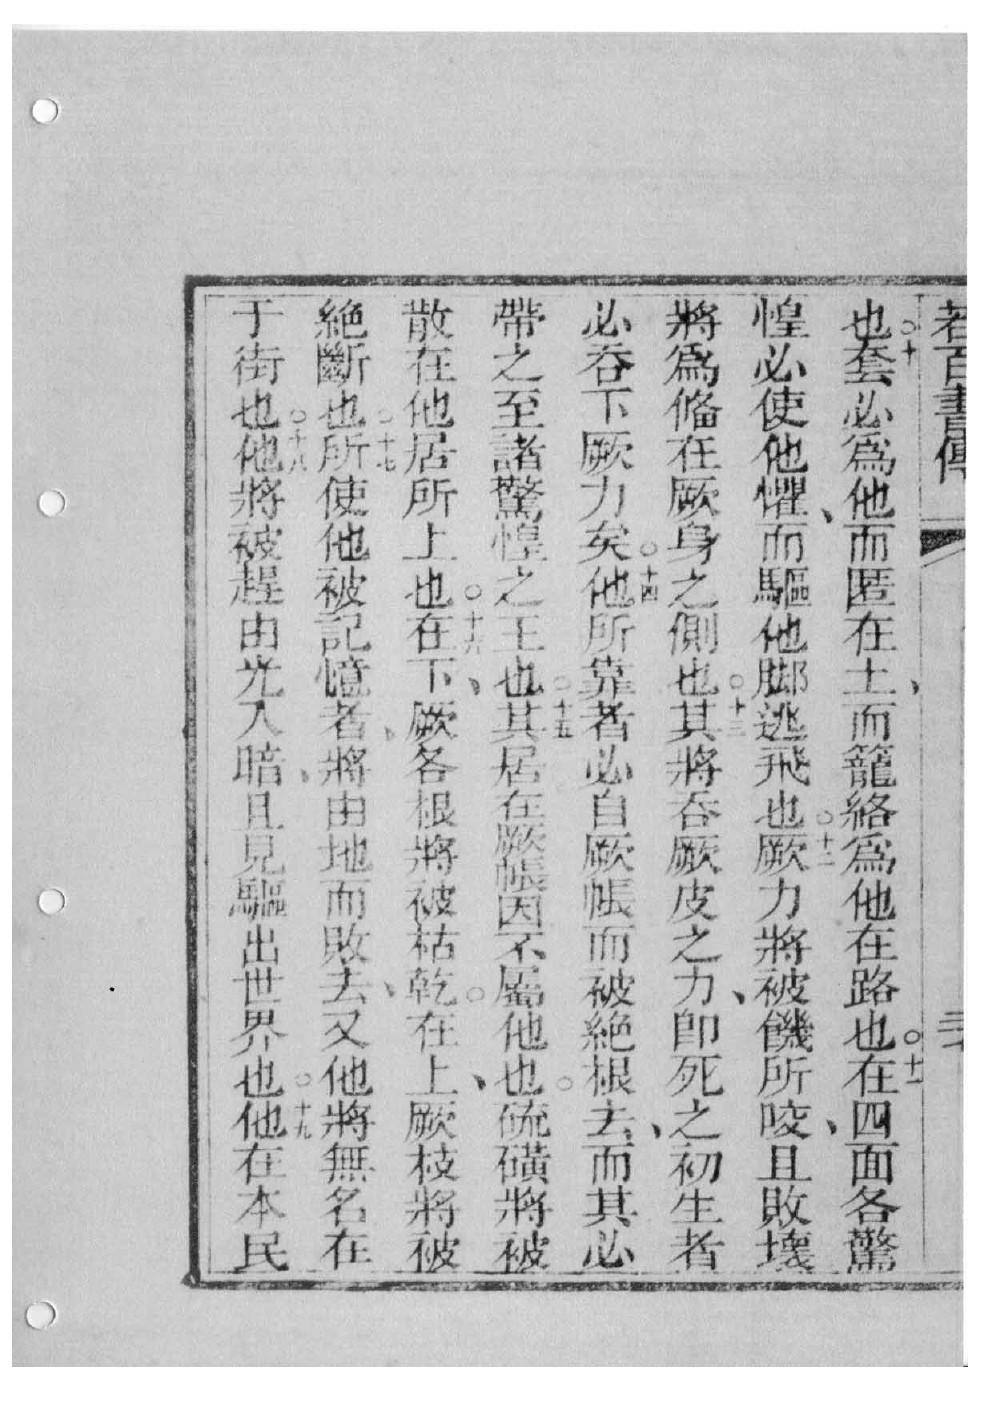 若百書傳 二十
也○十套必爲他而匿在土、而籠絡爲他在路也○十一在四面各驚
惶必使他懼、而驅他脚逃飛也○十二厥力將被饑所咬、且敗壞
將爲偹在厥身之側也○十三其將吞厥皮之力、卽死之初生者
必吞下厥力矣○十四他所靠者必自厥帳而被絕根去、而其必
帶之至諸驚惶之王也○十五其居在厥帳因不屬他也○硫磺將被
散在他居所上也○十六在下、厥各根將被枯乾○在上、厥枝將被
絕斷也○十七所使他被記憶者、將由地而敗去、又他將無名在
于街也○十八他將被趕由光入暗、且見驅出世界也○十九他在本民